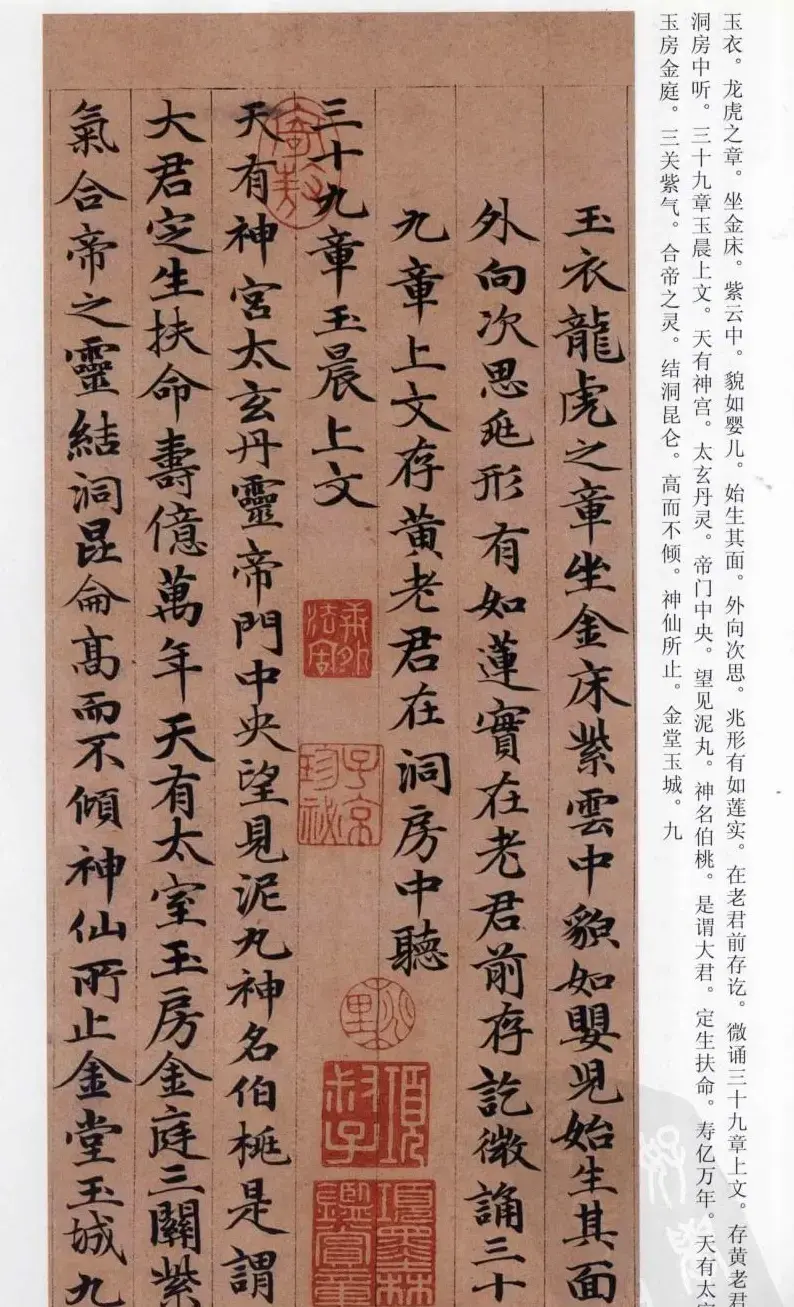 玉衣。龙虎之章。坐金床。紫云中。貌如婴儿。始生其面。外向次思。兆形有如莲实。在老君前存讫。微诵三十九章上文。存黄老君
洞房中听。三十九章玉晨上文。天有神宫。太玄丹灵。帝门中央。望见泥丸。神名伯桃。是谓大君。定生扶命。寿亿万年。天有太室
玉房金庭。三关紫气。合帝之灵。结洞昆仑。高而不倾。神仙所止。金堂玉城。九
玉衣龍虎之章坐金床紫雲中貌如嬰兒始生其面
外向次思兆形有如蓮實在老君前存訖微誦三十
九章上文存黄老君在洞房中聽
三十九章玉晨上文
子京
珍秘
項
叔子
項墨林
鑑賞章
天有神宮太玄丹靈帝門中央望見泥丸神名伯桃是謂
大君定生扶命壽億萬年天有太室玉房金庭三關紫
氣合帝之靈結洞昆侖高而不傾神仙所止金堂玉城九